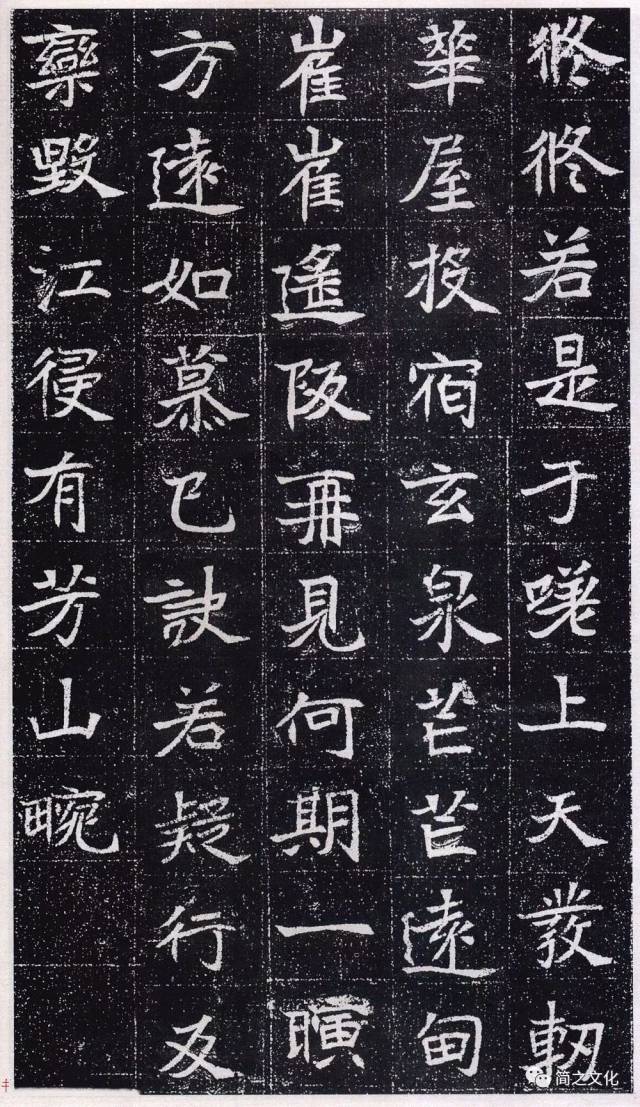 若是于嗟上天發軔
華屋投宿玄泉芒芒遠甸
崔崔遙阪再見何期一瞚
方遠如慕已訣若疑行反
欒毀江侵有芳山畹
简之文化